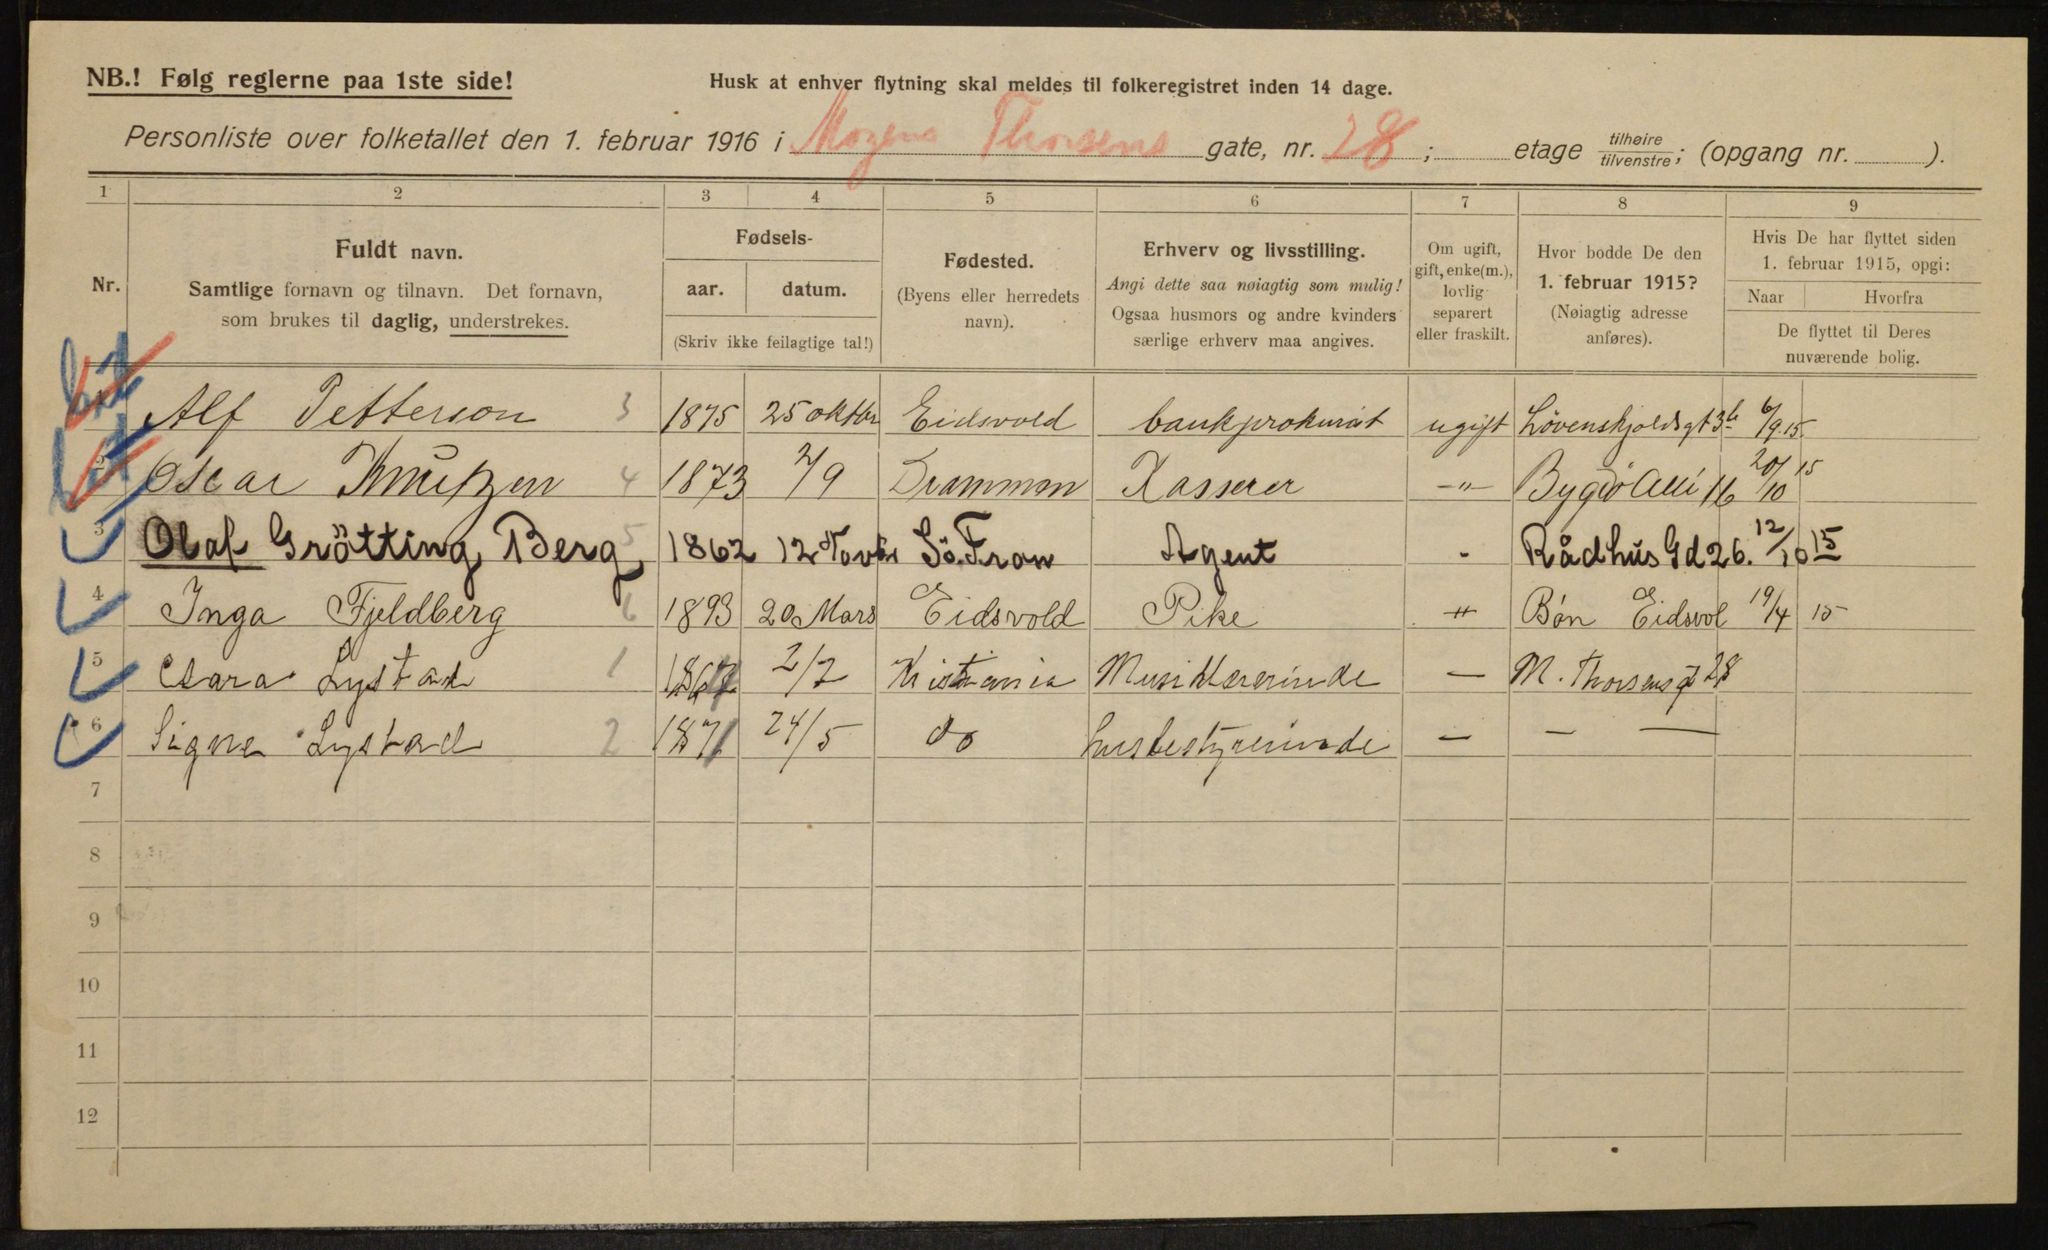 NB.! Følg reglerne paa 1ste side!
Husk at enhver flytning skal meldes til folkeregistret inden 14 dage.
Personliste over folketallet den 1. februar 1916 i Mogens Thorsens gate, nr. 28 ; etage tilhøire tilvenstre; (opgang nr. ).
1 2 3 4 5 6 7 8 9
Nr.
Fuldt navn.
Samtlige fornavn og tilnavn. Det fornavn,
som brukes til daglig, understrekes.
Fødsels-
aar. datum.
(Skriv ikke feilagtige tal!)
Fødested.
(Byens eller herredets
navn).
Erhverv og livsstilling.
Angi dette saa nøiagtig som mulig!
Ogsaa husmors og andre kvinders
særlige erhverv maa angives.
Om ugift,
gift, enke(m.),
lovlig
separert
eller fraskilt.
Hvor bodde De den
1. februar 1915?
(Nøiagtig adresse
anføres).
Hvis De har flyttet siden
1. februar 1915, opgi:
Naar Hvorfra
De flyttet til Deres
nuværende bolig.
1 Alf Petterson 3 1875 25 oktbr Eidsvold bankprokurist ugift Løvenskjoldsgt 3b 6/9.15.
2 Oscar Knutzen 4 1873 2/9 Drammen Kasserer -"- Bygdö Allé 16 20/10 15
3 Olaf Grötting Berg 5 1862 12 Novbr Sö. Fron Agent - Rådhus Gd 26. 12/10 15
4 Inga Fjeldberg 6 1893 20 Mars Eidsvold Pike " Bøn Eidsvol 19/4 15
5 Clara Lystad 1 1867 2/7 Kristiania Musiklærerinde — M. Thorsensgt 28
6 Signe Lystad 2 1871 24/5 do husbestyrerinde — — —
7
8
9
10
11
12